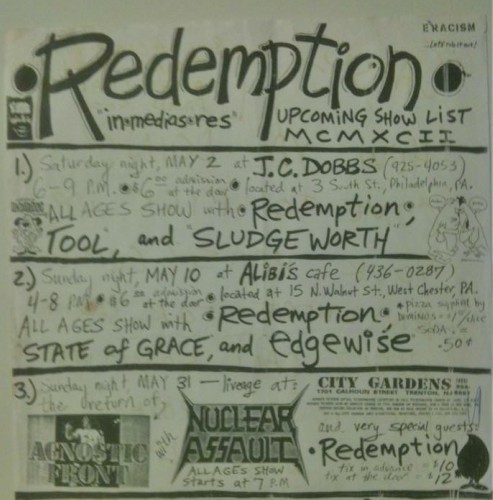 ERACISM
Redemption
"in•medias•res"
UPCOMING SHOW LIST
MCMXCII
1.) Saturday night, MAY 2 at J.C. DOBBS (925-4053)
6-9 P.M. • $6.00 admission at the door • located at 3 South St., Philadelphia, PA.
ALL AGES SHOW with • Redemption,
TOOL, and "SLUDGEWORTH"
2.) Sunday night, MAY 10 at ALiBi's cafe (436-0287)
4-8 P.M. • $6.00 admission at the door • located at 15 N. Walnut St., West Chester, PA.
ALL AGES SHOW with • Redemption,
* pizza supplied by
DOMINOS = $1/slice
SODA =
.50¢
STATE of GRACE, and edgewise
3.) Sunday night, MAY 31 — liveage at:
the return of,
CITY GARDENS
1701 CALHOUN STREET TRENTON, NJ
AGNOSTIC
FRONT
with
NUCLEAR
ASSAULT
ALL AGES SHOW
starts at 7 P.M
and very special guests:
• Redemption
tix in advance = $10
tix at the door = $12